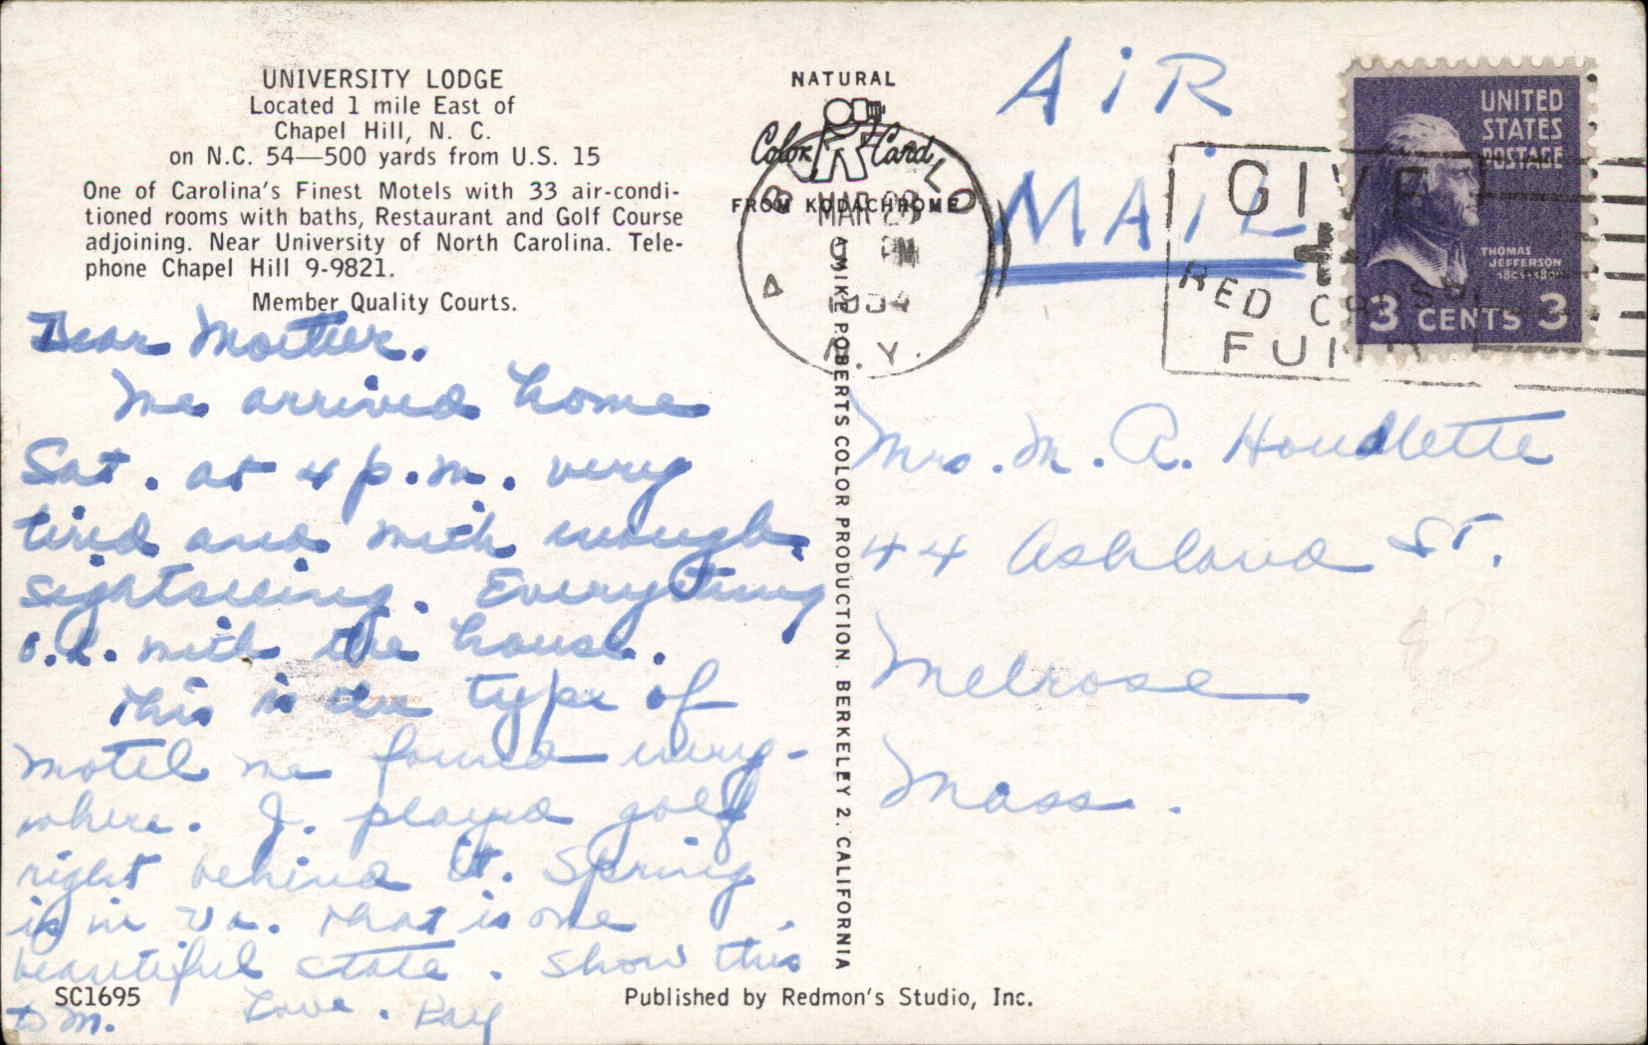 UNIVERSITY LODGE
Located 1 mile East of
Chapel Hill, N. C.
on N.C. 54—500 yards from U.S. 15
One of Carolina's Finest Motels with 33 air-condi-
tioned rooms with baths, Restaurant and Golf Course
adjoining. Near University of North Carolina. Tele-
phone Chapel Hill 9-9821.
Member Quality Courts.
Dear Mother.
We arrived home
Sat. at 4 p.m. very
tired and with enough
sightseeing. Everything
o.k. with the house.
This is the type of
motel we found every-
where. J. played golf
right behind it. Spring
is in Va. That is one
beautiful state. Show this
to M. Love. Kay
SC1695
Published by Redmon's Studio, Inc.
NATURAL
Color Card
FROM KODACHROME
A MIKE ROBERTS COLOR PRODUCTION. BERKELEY 2. CALIFORNIA
BUFFALO
MAR
PM
1954
N.Y.
AiR
MAiL
GIVE
RED CROSS
FUND
UNITED
STATES
POSTAGE
THOMAS
JEFFERSON
1801-1809
3 CENTS 3
Mrs. M. A. Houdlette
44 Ashland St.
Melrose
Mass.